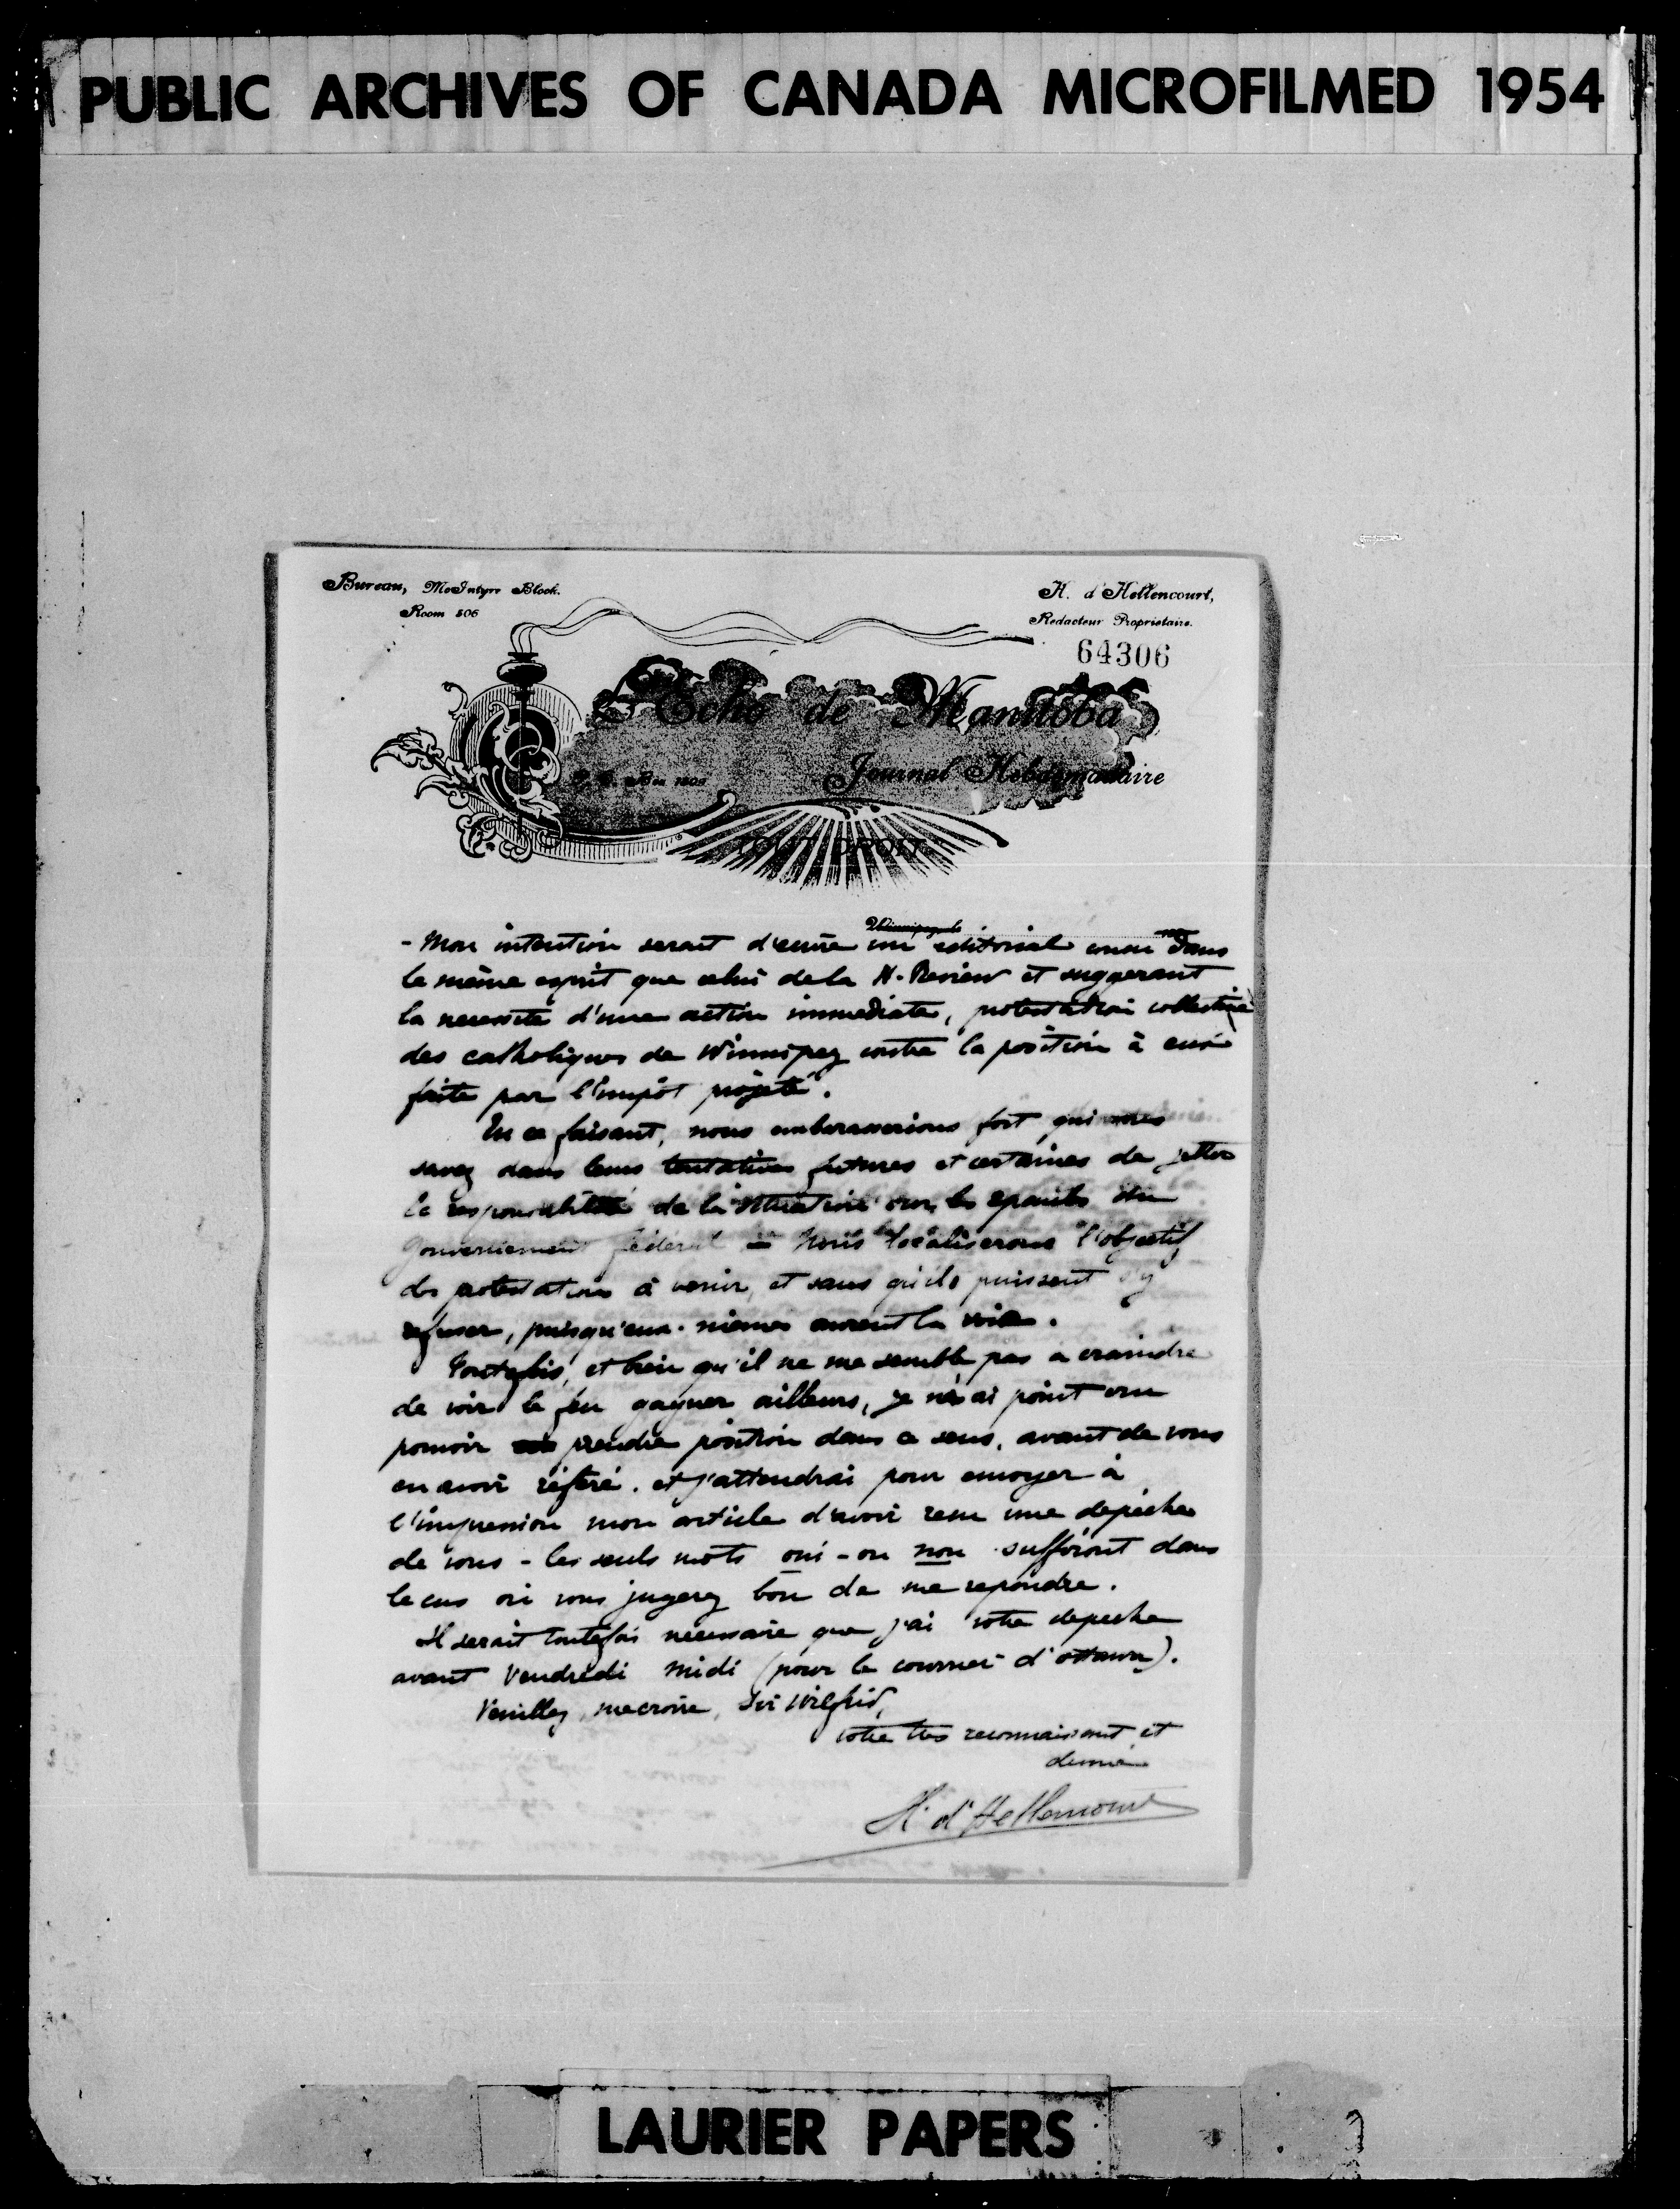 PUBLIC ARCHIVES OF CANADA MICROFILMED 1954
Bureau, McIntyre Block.
Room 506
H. d'Hellencourt,
Redacteur Proprietaire.
64306
L'Echo de Manitoba
Journal Hebdomadaire
P. O. Box
TOUT DROIT
- Mon intention serait d'écrire un editorial concu dans
le même esprit que celui de la N. Review et suggerant
la necessité d'une action immediate, protestation collective
des catholiques de Winnipeg contre la position à eux
faite par l'impôt projeté.
En ce faisant, nous embarasserions fort, qui vous
savez dans leurs tentatives futures et certaines de jetter
la responsabilité de la situation sur les epaules du
Gouvernement féderal - Nous localiserons l'objectif
des protestations à venir, et sans qu'ils puissent s'y
refuser, puisqu'eux-mêmes auront la
Toutefois, et bien qu'il ne me semble pas a craindre
de voir le feu gagner ailleurs, je n'ai point cru
pouvoir prendre position dans ce sens, avant de vous
en avoir référé. et j'attendrai pour envoyer à
l'impression mon article d'avoir recu une depêche
de vous - les seuls mots oui - ou non suffiront dans
le cas où vous jugerez bon de me repondre.
Il serait toutefois necessaire que j'ai votre depeche
avant Vendredi midi (pour le courrier d'ottawa).
Veuillez me croire, Sir Wilfrid,
votre tres reconnaissant et
devoué
H. d'Hellencourt
LAURIER PAPERS